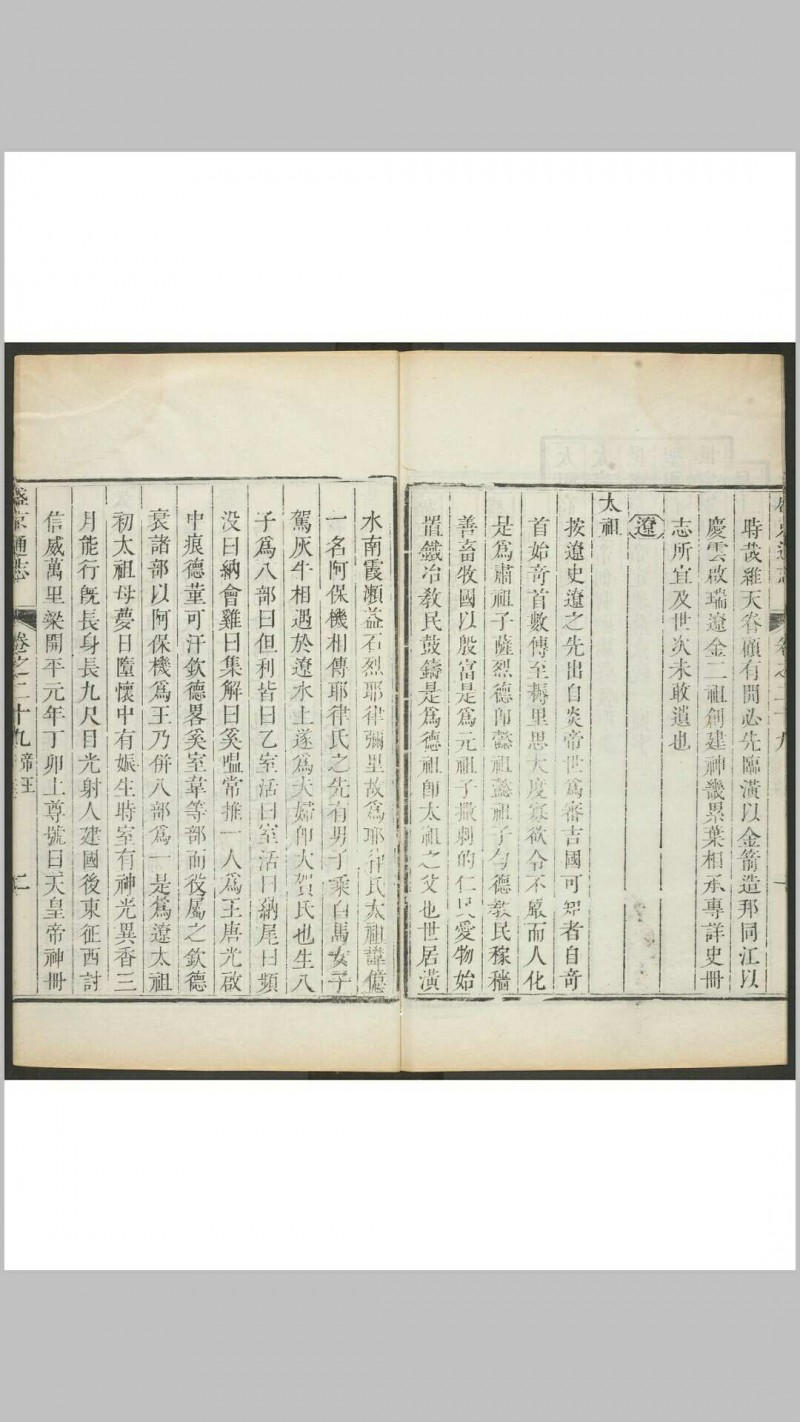 時哉雖天眷顧有開必先臨潢以金箭造邦同江以
慶雲啟瑞遼金二祖創建神畿累葉相承專詳史冊
志所宜及世次未敢遺也
遼
太祖
按遼史遼之先出自炎帝世爲審吉國可知者自奇
首始奇首數傳至耨里思大度寡欲令不嚴而人化
是爲肅祖子薩烈德卽懿祖懿祖子勻德教民稼穡
善畜牧國以殷富是爲元祖子撒剌的仁民愛物始
置鐵冶教民鼓鑄是爲德祖卽太祖之父也世居潢
水南霞瀬益石烈耶律彌里故爲耶律氏太祖諱億
一名阿保機相傳耶律氏之先有男子乘白馬女子
駕灰牛相遇於遼水上遂爲夫婦卽大賀氏也生八
子爲八部曰但利皆曰乙室活曰室活曰納尾曰頻
没曰納會雞曰集解曰奚嗢常推一人爲王唐光啟
中痕德菫可汗欽德畧奚室韋等部而役屬之欽德
衰諸部以阿保機爲王乃併八部爲一是爲遼太祖
初太祖母夢日墮懷中有娠生時室有神光異香三
月能行旣長身長九尺目光射人建國後東征西討
信威萬里梁開平元年丁卯上尊號曰天皇帝神冊
盛京通志
卷之二十九
帝王
二